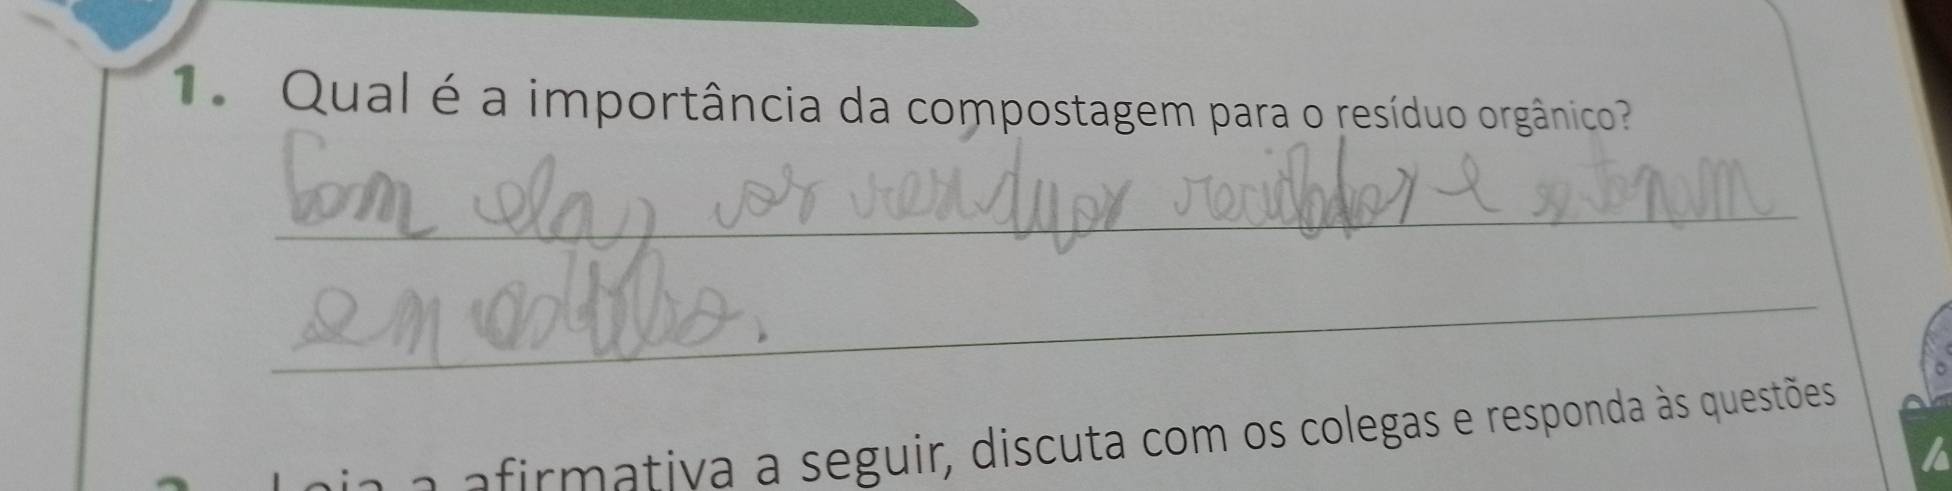 1. Qual é a importância da compostagem para o resíduo orgânico?
Com ela, os resíduos reciclados e se tornam
em adubo.
a afirmativa a seguir, discuta com os colegas e responda às questões